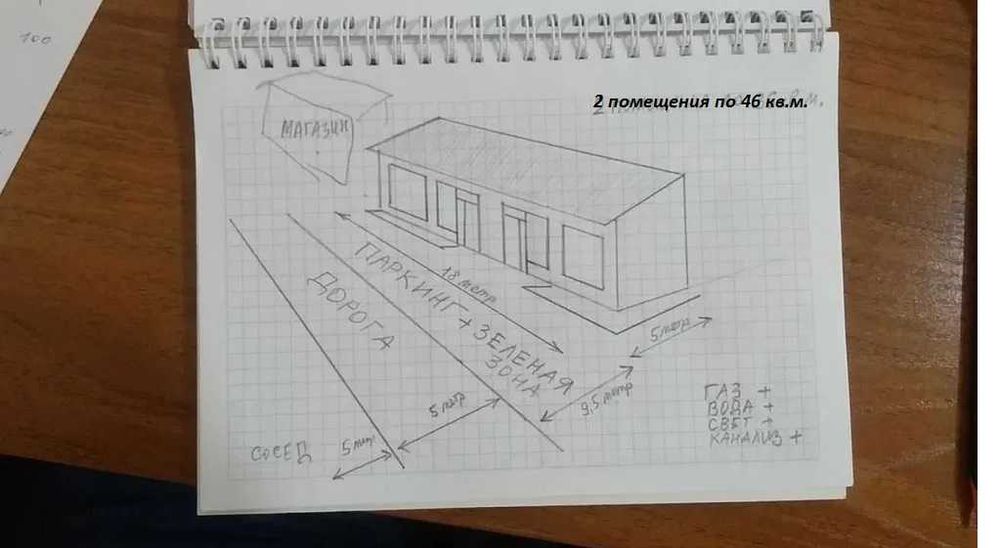 100
2 помещения по 46 кв.м.
МАГАЗИН
18 метр
ПАРКИНГ + ЗЕЛЕНАЯ
ЗОНА
ДОРОГА
5 метр
9,5 метр
5 метр
5 метр
СОСЕД
ГАЗ +
ВОДА +
СВЕТ +
КАНАЛИЗ +